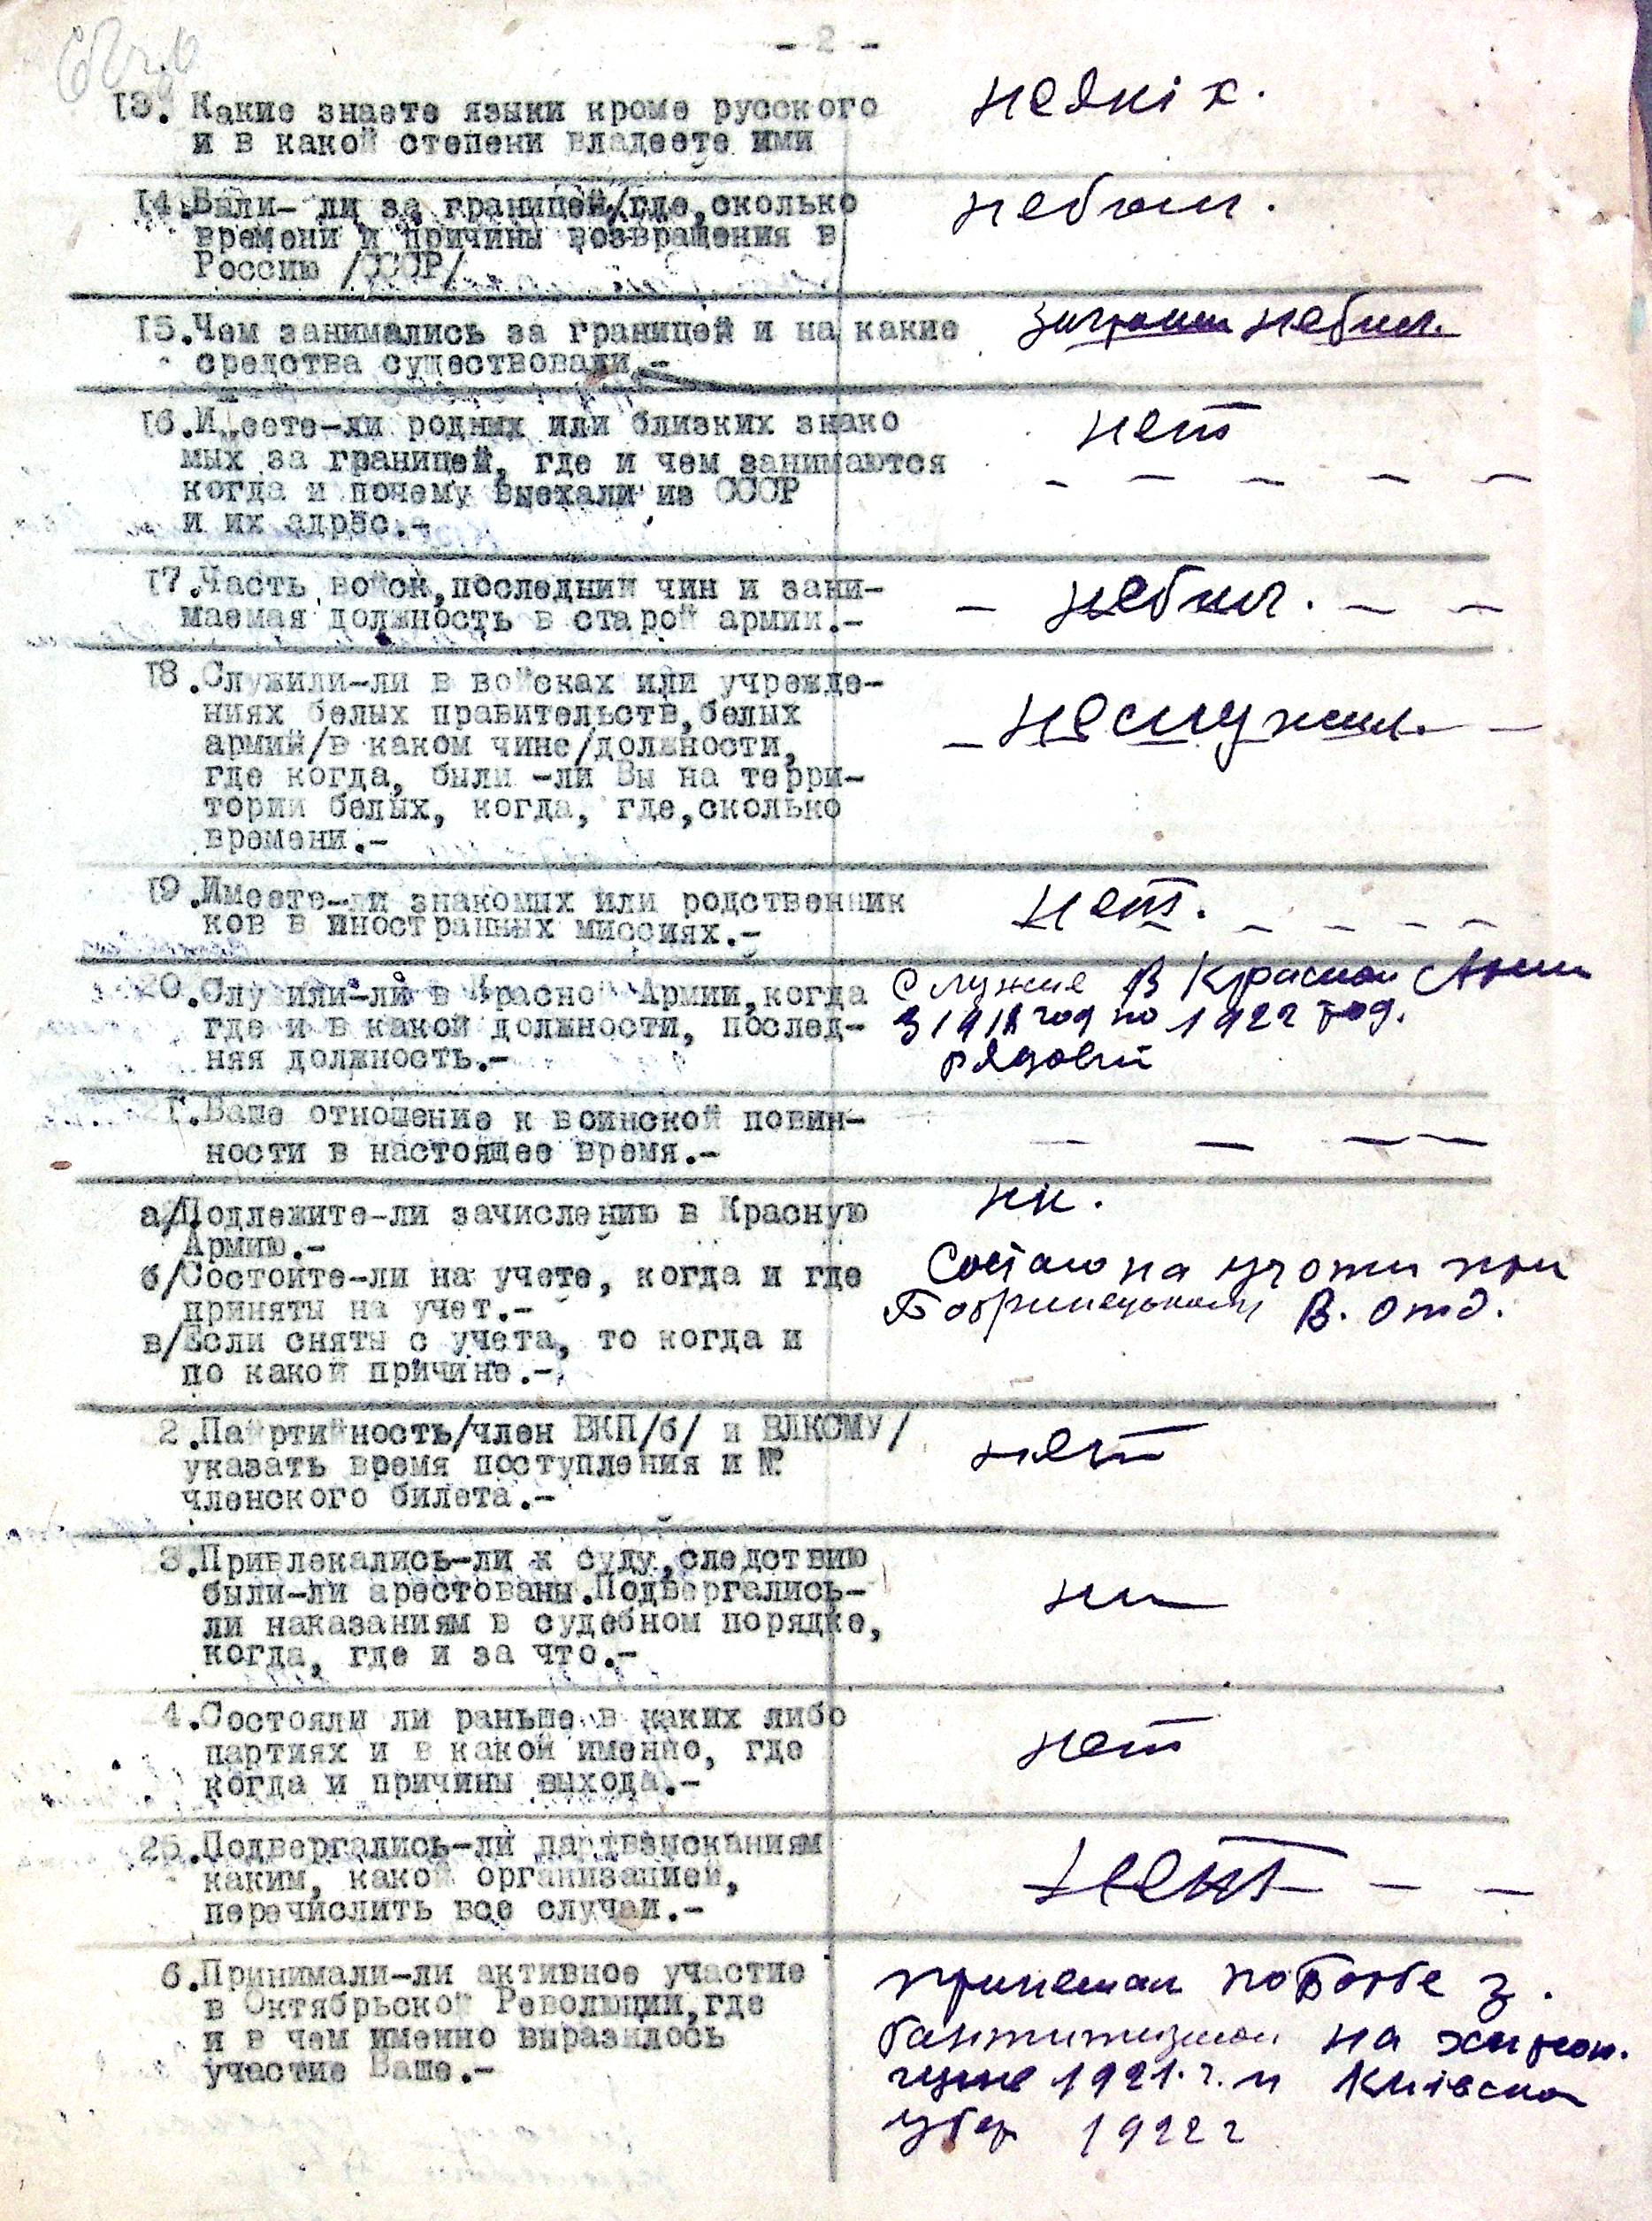 - 2 -
I3. Какие знаете языки кроме русского
и в какой степени владеете ими
неякіх.
I4.Были- ли за границей/где,сколько
времени и причины возвращения в
Россию /СССР/
небыл.
I5.Чем занимались за границей и на какие
средства существовали.-
небыл.
I6.Имеете-ли родных или близких знако
мых за границей, где и чем занимаются
когда и почему выехали из СССР
и их адрес.-
нет
- - - - -
I7.Часть войск,последний чин и зани-
маемая должность в старой армии.-
- небыл. - -
I8.Служили-ли в войсках или учрежде-
ниях белых правительств,белых
армий/в каком чине/должности,
где когда, были -ли Вы на терри-
тории белых, когда, где,сколько
времени.-
- неслужил. -
I9.Имеете-ли знакомых или родственник
ков в иностранных миссиях.-
нет. - - - -
20.Служили-ли в Красной Армии,когда
где и в какой должности, послед-
няя должность.-
Служил В Красной Армии
З 1918 год по 1922 год.
рядовий
2I.Ваше отношение к воинской повин-
ности в настоящее время.-
- - - -
а/Подлежите-ли зачислению в Красную
Армию.-
ни.
б/Состоите-ли на учете, когда и где
приняты на учет.-
в/Если сняты с учета, то когда и
по какой причине.-
Состою на учоти при
Бобринецьком В. отд.
2.Пайртийность/член ВКП/б/ и ВЛКСМУ/
указать время поступления и №
членского билета.-
нет
3.Привлекались-ли к суду,следствию
были-ли арестованы.Подвергались-
ли наказаниям в судебном порядке,
когда, где и за что.-
ни
4.Состояли ли раньше в каких либо
партиях и в какой именно, где
когда и причины выхода.-
нет
25.Подвергались-ли партвзысканиям
каким, какой организацией,
перечислить все случаи.-
нет - -
6.Принимали-ли активное участие
в Октябрьской Революции,где
и в чем именно выразилось
участие Ваше.-
принемал по Борбе з.
бантитизмом на
1921.г. и Киівска
1922 г